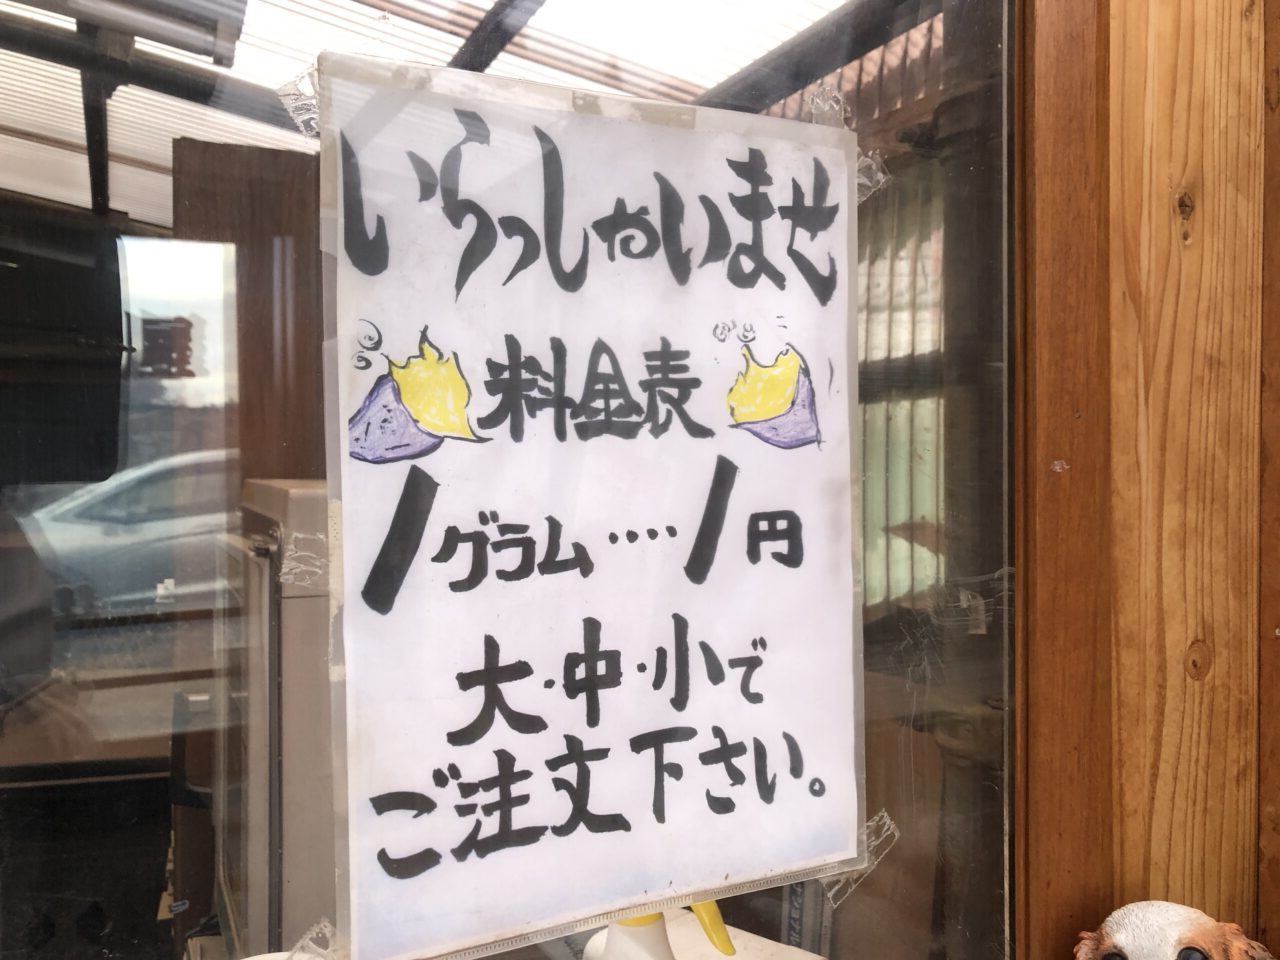 いらっしゃいませ
料金表
1グラム‥‥1円
大・中・小で
ご注文下さい。